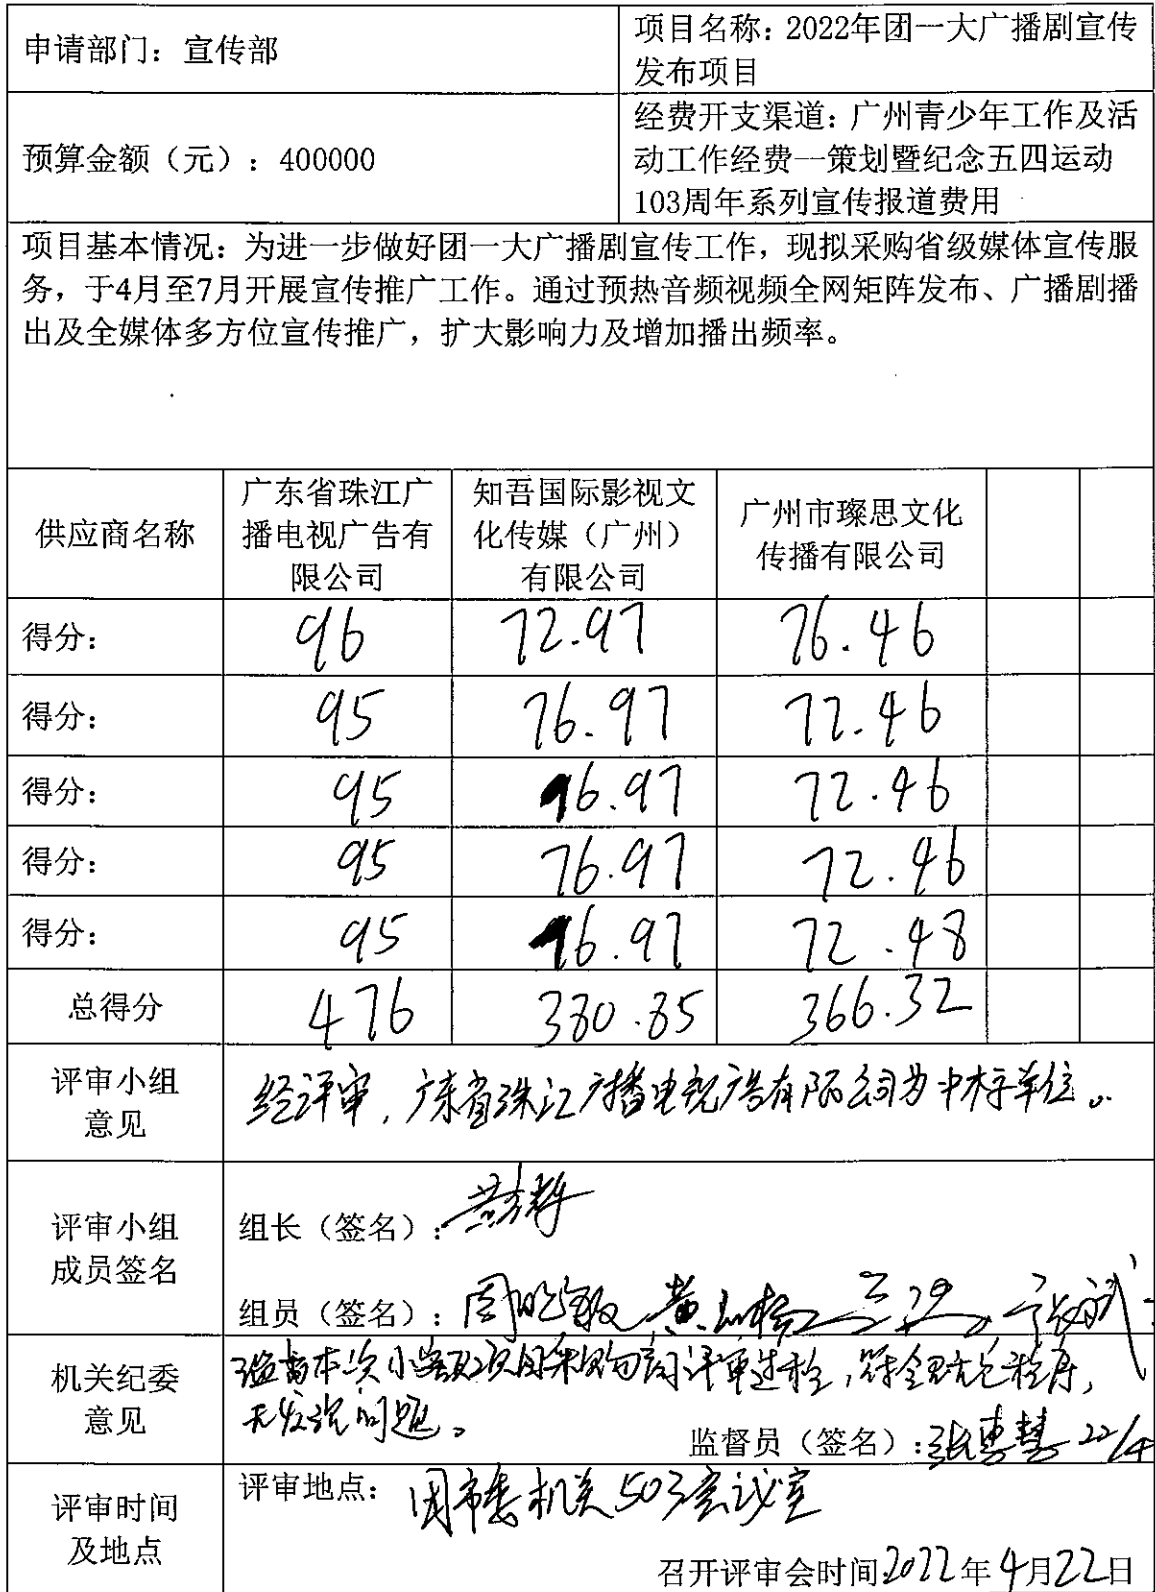 申请部门：宣传部
项目名称：2022年团一大广播剧宣传
发布项目
预算金额（元）：400000
经费开支渠道：广州青少年工作及活
动工作经费—策划暨纪念五四运动
103周年系列宣传报道费用
项目基本情况：为进一步做好团一大广播剧宣传工作，现拟采购省级媒体宣传服
务，于4月至7月开展宣传推广工作。通过预热音频视频全网矩阵发布、广播剧播
出及全媒体多方位宣传推广，扩大影响力及增加播出频率。
供应商名称
广东省珠江广
播电视广告有
限公司
知吾国际影视文
化传媒（广州）
有限公司
广州市璨思文化
传播有限公司
得分： 96 72.97 76.46
得分： 95 76.97 72.46
得分： 95 76.97 72.46
得分： 95 76.97 72.46
得分： 95 76.97 72.48
总得分 476 380.85 366.32
评审小组
意见
经评审，广东省珠江广播电视广告有限公司为中标单位。
评审小组
成员签名
组长（签名）：
组员（签名）：
机关纪委
意见
本次小额项目采购询评审过程，符合规定程序，
无发现问题。
监督员（签名）：张惠慧 22/4
评审时间
及地点
评审地点：团市委机关503会议室
召开评审会时间2022年4月22日